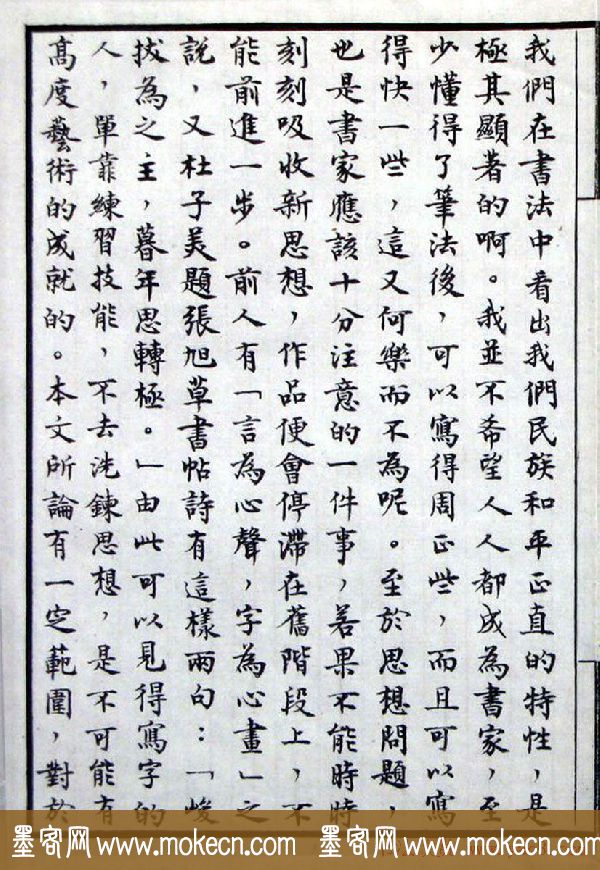 我們在書法中看出我們民族和平正直的特性，是
極其顯著的啊。我並不希望人人都成為書家，至
少懂得了筆法後，可以寫得周正些，而且可以寫
得快一些，這又何樂而不為呢。至於思想問題，
也是書家應該十分注意的一件事，若果不能時時
刻刻吸收新思想，作品便會停滯在舊階段上，不
能前進一步。前人有「言為心聲，字為心畫」之
說，又杜子美題張旭草書帖詩有這樣兩句：「峻
拔為之主，暮年思轉極。」由此可以見得寫字的
人，單靠練習技能，不去洗鍊思想，是不可能有
高度藝術的成就的。本文所論有一定範圍，對於
墨客网 www.mokecn.com 墨客网 www.mokecn.com